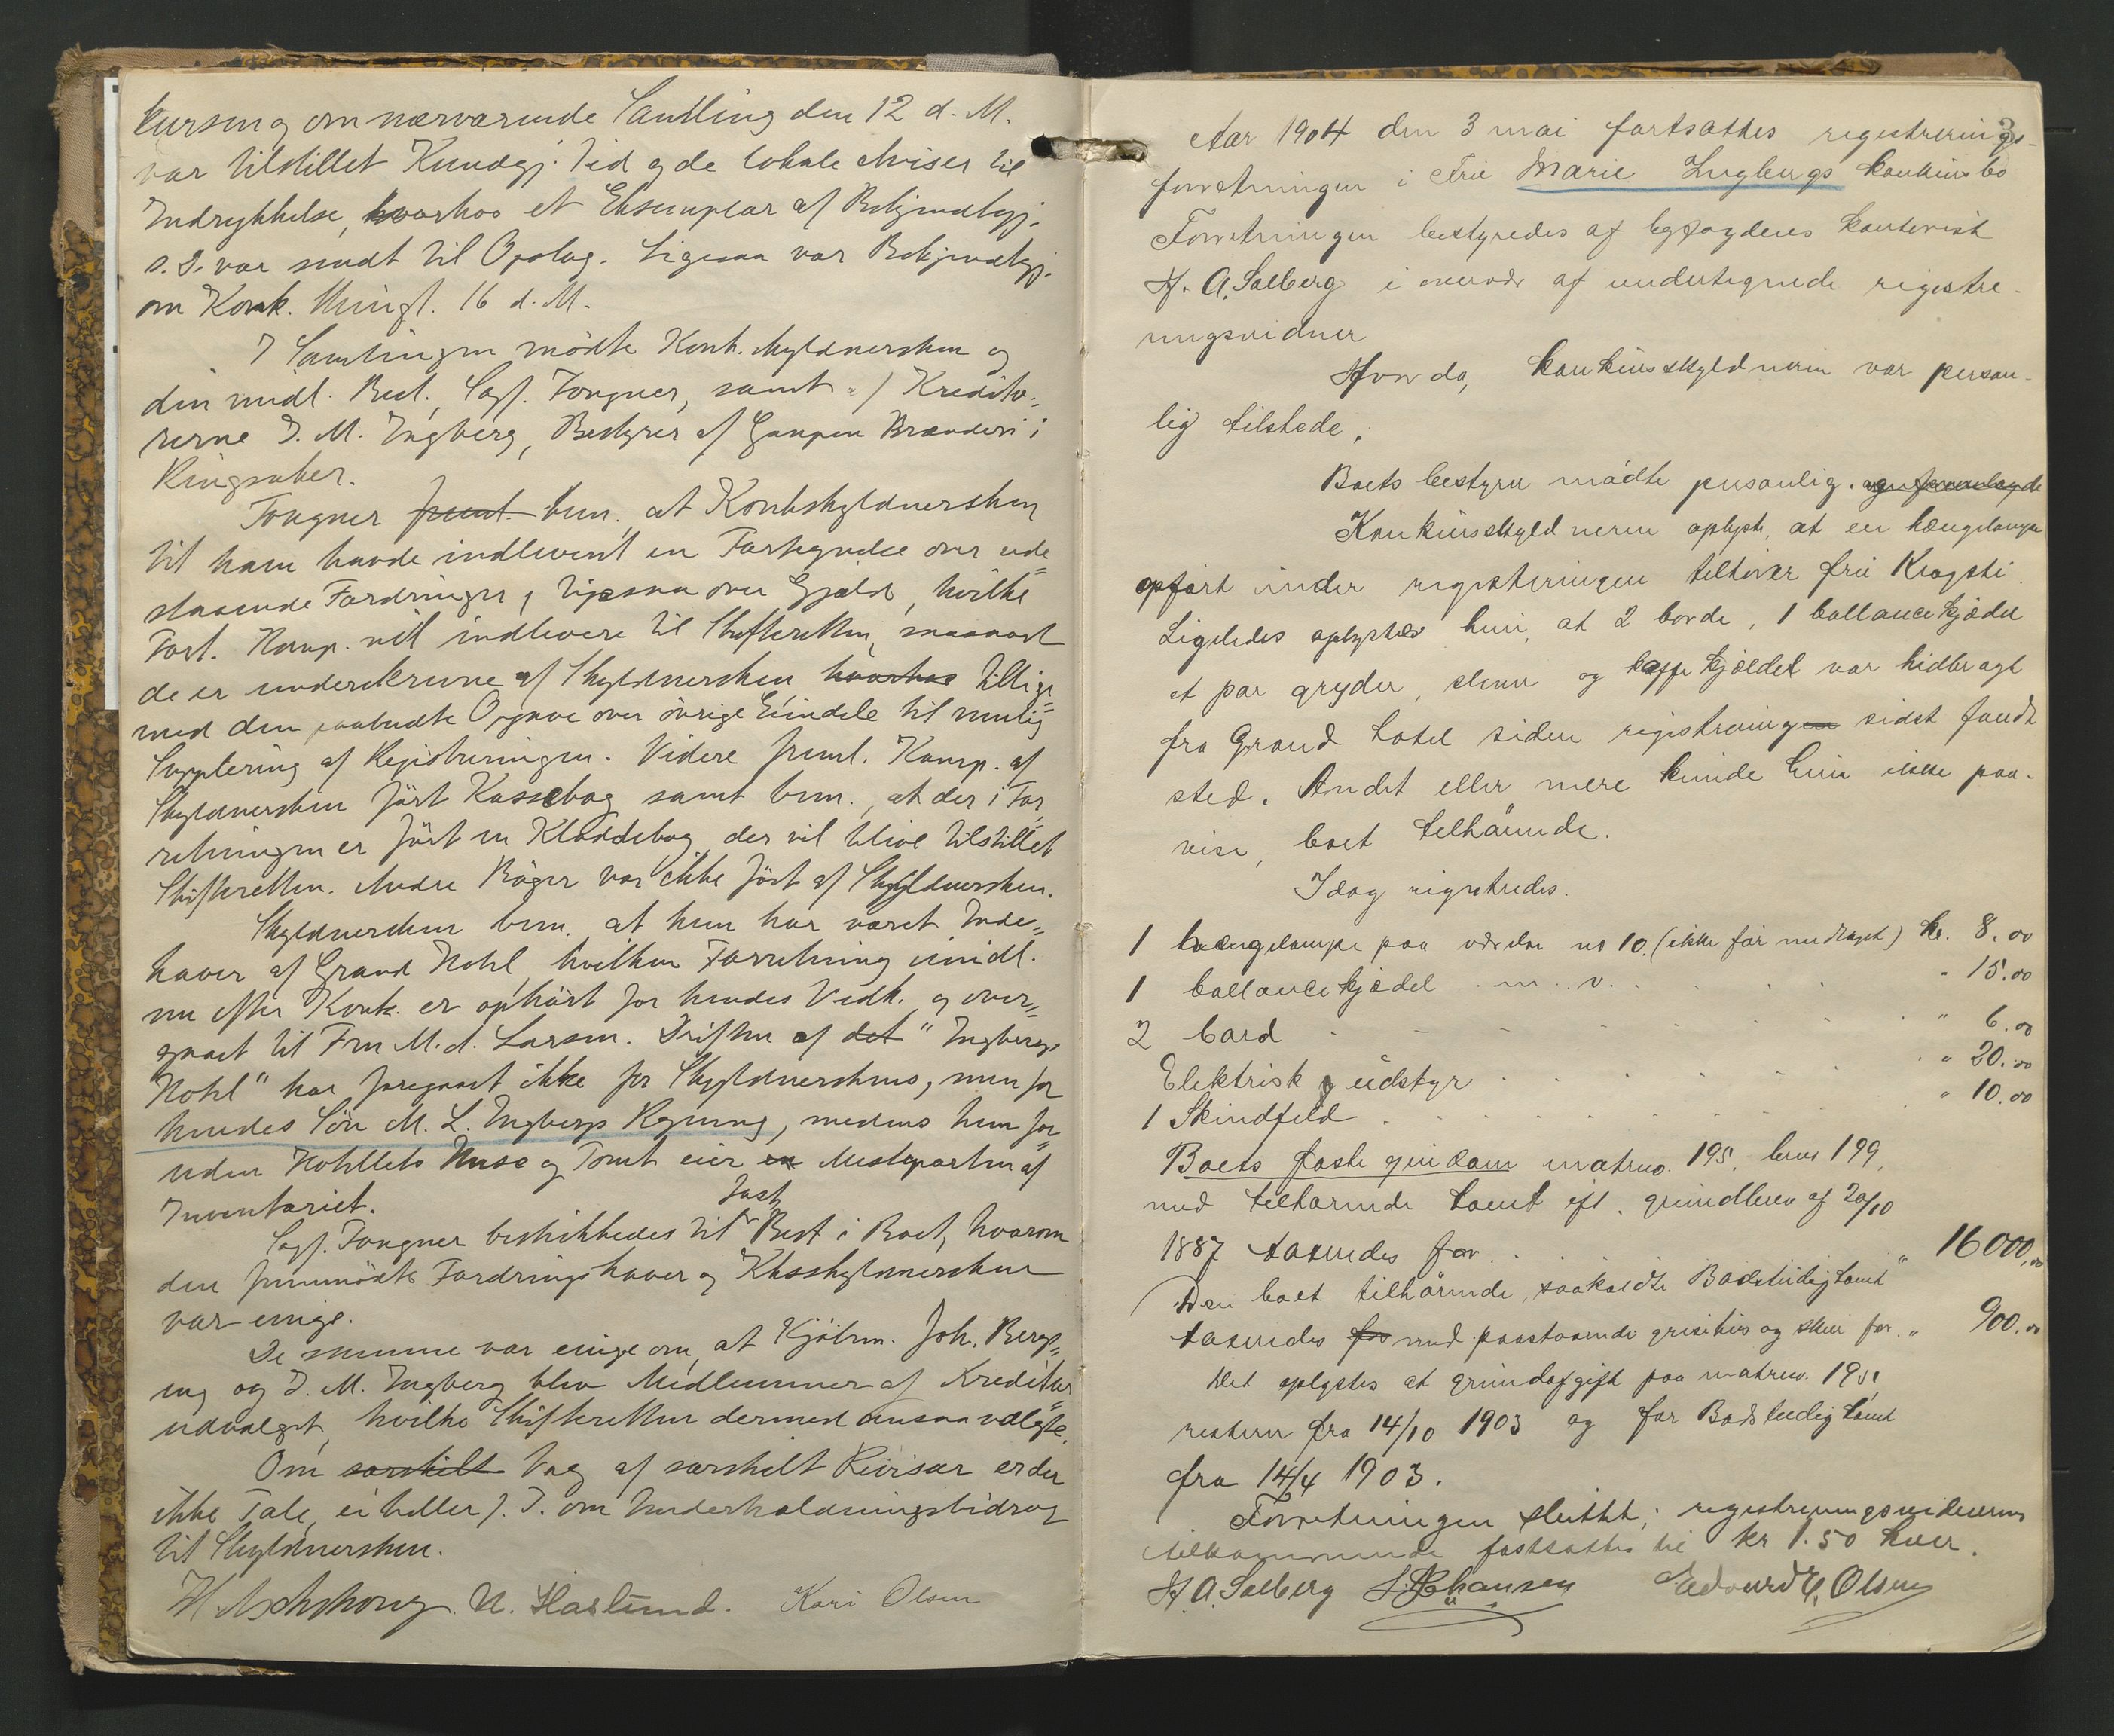 kursen og om nærværende Samling den 12 d. M.
var tilstillet Kundgj. Tid og de lokale Aviser til
Indrykkelse, hvorhos et Eksemplar af Bekjendtgj.
s. D. var sendt til Opslag. Ligesaa var Bekjendtgj.
om Konk. thingl. 16 d. M.
I Samlingen mødte Konk. skyldnersken og
den midl. Best., Sagf. Tongner, samt af Kredito-
rerne I. M. Ingberg, Bestyrer af Brænderi i
Ringsaker.
Tongner freml. bem. at Konkskyldnersken
til ham havde indleveret en Fortegnelse over ude-
staaende Fordringer, ligesaa over Gjæld, hvilke
Fort. Komp. vil indlevere til Skifteretten, saasnart
de er underskrevne af Skyldnersken hvorhos tillige-
med den paabudte Opgave over øvrige Eiendele til mulig
Supplering af Registreringen. Videre freml. Komp. af
Skyldnersken ført Kassebog samt bem., at der i For-
retningen er ført en Kladdebog, der vil blive tilstillet
Skifteretten. Andre Bøger var ikke ført af Skyldnersken.
Skyldnersken bem. at hun har været Inde-
haver af Grand Hotel, hvilken Forretning imidl.
nu efter Konk. er ophørt for hendes Vedk. og over-
gaaet til Fru M. d. Larsen. Driften af det "Ingbergs
Hotel" har foregaaet ikke for Skyldnerskens, men for
hendes Søn M. L. Ingbergs Regning, medens hun for-
uden Hotellets Huse og Tomt eier en Mesteparten af
Inventariet.
fast
Sagf. Tongner beskikkedes til Best. i Boet, hvorom
den fremmødte Fordringshaver og Kksskyldnersken
var enige.
De samme var enige om, at Kjøbm. Joh. Berg-
eng og I. M. Ingberg blev Medlemmer af Kreditor-
udvalget, hvilke Skifteretten dermed ansaa valgte.
Om særskilt Valg af særskilt Revisor er der
ikke Tale, ei heller f. T. om Underholdningsbidrag
til Skyldnersken.
N. Haslund. Kari Olsen
Aar 1904 den 3 mai fortsattes registrerings-
forretningen i Frue Marie Ingbergs konkursbo
Forretningen bestyredes af byfogdens kontorist
H. A. Solberg i overvær af undertegnede registre-
ringsvidner
Hvorda, konkursskyldneren var person-
lig tilstede.
Boets bestyrer mødte personlig. og fremlagde
Konkursskyldneren oplyste, at en hængelampe
opført under registreringen tilhører frue Krogsti.
Ligeledes oplystes hun, at 2 borde, 1 ballancekjædel
et par gryder, og kaffekjædel var hidbragt
fra Grand hotel siden registreringen sidst fandt
sted. Andet eller mere kunde hun ikke paa-
vise, boet tilhørende.
Idag registredes.
1 hængelampe paa værelse no 10. (ikke før medtaget) kr. 8.00
1 ballancekjædel m. v. " 15.00
2 bord " 6.00
Elektrisk udstyr " 20.00
1 Skindfeld " 10.00
Boets faste eiendom matrno. 195, brno 199,
med tilhørende tomt efter grundbrev af 20/10
1887 taxeredes for " 16000,00
Den boet tilhørende, saakaldte Badstudigtomt
taxeredes for med paastaaende grisehus og skur for " 900.00
Det oplystes at grundafgift paa matrno. 195,
resterer fra 14/10 1903 og for Badstudigtomt
fra 14/4 1903.
Forretningen sluttet; registreringsvidnerne
tilkommende fastsattes til kr 1.50 hver.
H. A. Solberg Johansen Edvard E. Olsen